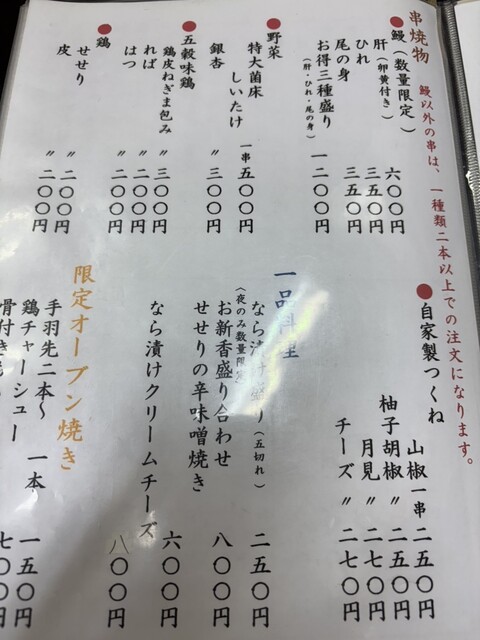 串焼物 鰻以外の串は、一種類二本以上での注文になります。
●鰻(数量限定)
肝(卵黄付き) 六〇〇円
ひれ 三五〇円
尾の身 三五〇円
お得三種盛り 一二〇〇円
(肝・ひれ・尾の身)
●野菜
特大菌床しいたけ 一串 五〇〇円
銀杏 〃 三〇〇円
●五穀味鶏
鶏皮ねぎま包み 〃 三〇〇円
ればー 〃 二〇〇円
はつ 〃 二〇〇円
●鶏
せせり 〃 二〇〇円
皮 〃 二〇〇円
●自家製つくね
山椒 一串 二五〇円
柚子胡椒 〃 二五〇円
月見 〃 二七〇円
チーズ 〃 二七〇円
一品料理
なら漬け盛り(五切れ) 二五〇円
(夜のみ数量限定)
お新香盛り合わせ 八〇〇円
せせりの辛味噌焼き 六〇〇円
なら漬けクリームチーズ 八〇〇円
限定オーブン焼き
手羽先二本〜 一本 一五〇円
鶏チャーシュー 七〇〇円
骨付き